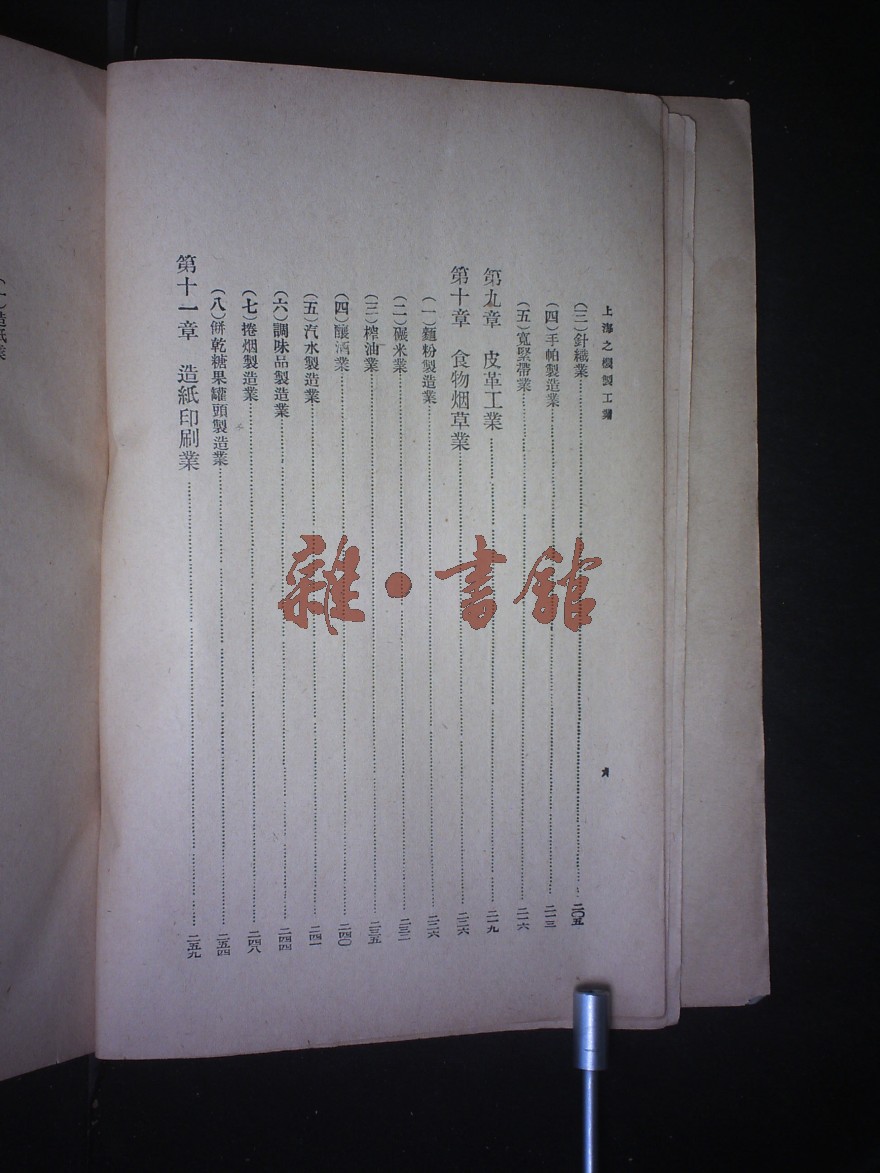 上海之機製工業
六
(三)針織業 二〇五
(四)手帕製造業 二一三
(五)寬緊帶業 二一六
第九章 皮革工業 二一九
第十章 食物烟草業 二二六
(一)麵粉製造業 二二六
(二)碾米業 二三二
(三)榨油業 二三五
(四)釀酒業 二四〇
(五)汽水製造業 二四一
(六)調味品製造業 二四四
(七)捲烟製造業 二四八
(八)餅乾糖果罐頭製造業 二五四
第十一章 造紙印刷業 二五九
(一)造紙業
雜·書館